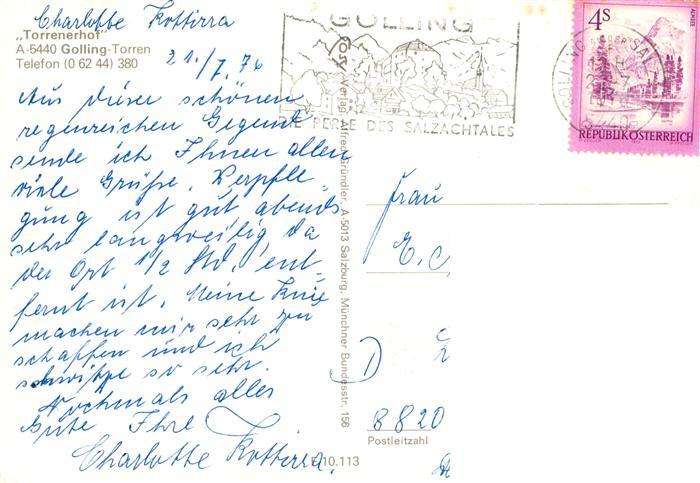 Charlotte Kottirra
„Torrenerhof"
A-5440 Golling-Torren
Telefon (0 62 44) 380
21./7.76
Aus dieser schönen
regenreichen Gegend
sende ich Ihnen allen
viele Grüße. Verpfle-
gung ist gut, abends
sehr langweilig, da
der Ort 1/2 Std. ent-
fernt ist. Meine Knie
machen mir sehr zu
schaffen und ich
schwitze so sehr.
Nochmals alles
Gute Ihre
Charlotte Kottirra.
GOLLING
DIE PERLE DES SALZACHTALES
4S
ALMSEE
REPUBLIK ÖSTERREICH
Verlag Alfred Gründler, A-5013 Salzburg, Münchner Bundesstr. 156
Frau
E. C.
D
8820
Postleitzahl
E 10.113